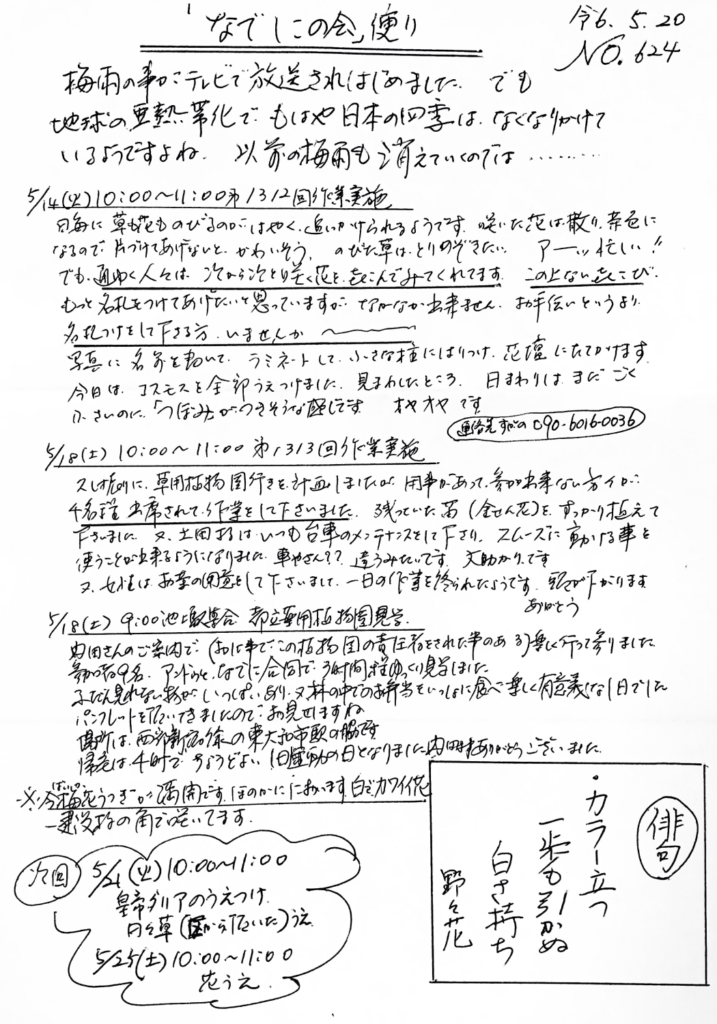 「なでしこの会」便り
令6.5.20
NO.624
梅雨の事がテレビで放送されはじめました. でも
地球の亜熱帯化で もはや日本の四季は なくなりかけて
いるようですよね. 以前の梅雨も消えていくのでは………
5/14(火)10:00〜11:00 第1312回作業実施
日毎に草も花ものびるのがはやく、追いかけられるようです. 咲いた花は散り、茶色に
なるので片づけてあげないと、かわいそう、のびた草は、とりのぞきたい アーッ忙しい!!
でも、通ゆく人々は 次から次と咲く花を、喜こんでみてくれてます. この上ない喜こび.
もっと名札をつけてあげたいと思っていますが、なかなか出来ません. お手伝いというより
名札つけをして下さる方、いませんか
写真に名前を書いて、ラミネートして、小さな柱にはりつけ 花壇にたてかけます.
今日は、コスモスを全部うえつけました. 見まわしたところ、日まわりは まだごく
小さいのに「つぼみ」がつきそうな感じです オヤオヤです
連絡先 090-6016-0036
5/18(土) 10:00〜11:00 第1313回作業実施
久し振りに、薬用植物園行きを計画しましたが 用事があって、参加出来ない方が
4名程出席されて、作業をして下さいました. 残っていた苗(金せん花)を、すっかり植えて
下さいました 又、土田様はいつも台車のメンテナンスをして下さり、スムーズに動かせる事を
使うことが出来るようになりました. 車やさん?? 違うみたいです. 大助かりです
又、女性はお茶の用意をして下さいまして、一日の作業を終られたようです. 頭が下がります
ありがとう
5/18(土) 9:00池上駅集合 都立薬用植物園見学
内田さんのご案内で (お仕事でこの植物園の責任者をされた事のある)楽しく行って参りました.
参加者9名. アンドゥと、なでしこ合同で、3時間程ゆっくり見学しました
ふだん見れない物がいっぱいあり、又林の中でのお弁当をいっしょに食べ楽しく有意義な1日でした
パンフレットを頂いてきましたので、お見せしますね
場所は、西武新宿線の東大和市駅の脇です
帰宅は4時で ちょうどよい1日運動の日となりました 内田様ありがとうございました
※今梅花うつぎが満開です. ほのかににおいます 白でカワイイ花
ばいか
建設予定の角で咲いてます.
次回
5/21(火)10:00〜11:00
皇帝ダリアのうえつけ
日々草(区から頂いた)うえ
5/25(土)10:00〜11:00
花うえ
俳句
・カラー立つ
一歩も引かぬ
白さ持ち
野々花